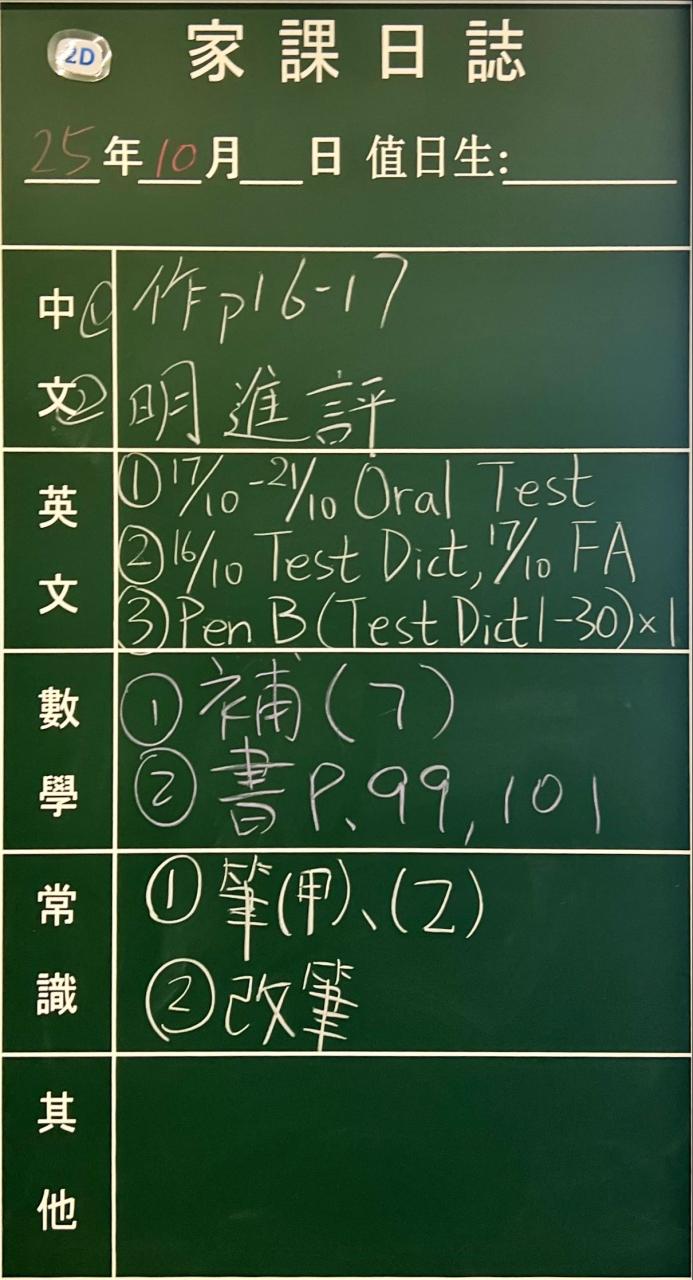 2D
家課日誌
25年10月 日 值日生:
中文
① 作p16-17
② 明進評
英文
① 17/10-21/10 Oral Test
② 16/10 Test Dict, 17/10 FA
③ Pen B (Test Dict 1-30)×1
數學
① 補(7)
② 書P、99, 101
常識
① 筆(甲)、(乙)
② 改筆
其他